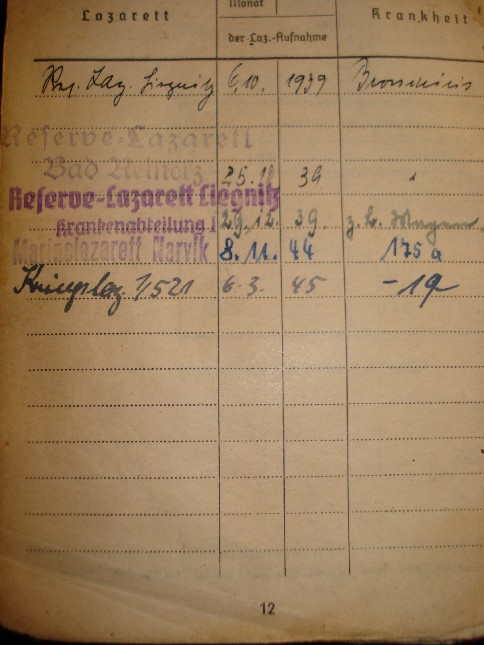 Lazarett
Monat
Krankheit
der Laz.-Aufnahme
Res. Laz. Liegnitz 6.10. 1939 Bronchitis
Reserve-Lazarett
Bad Reinerz 25.10 39 "
Reserve-Lazarett Liegnitz
Krankenabteilung I 29.12. 39. z. b.
Marinelazarett Narvik 8.11. 44 175a
Kriegslaz. 1/521 6.3. 45 -19
12